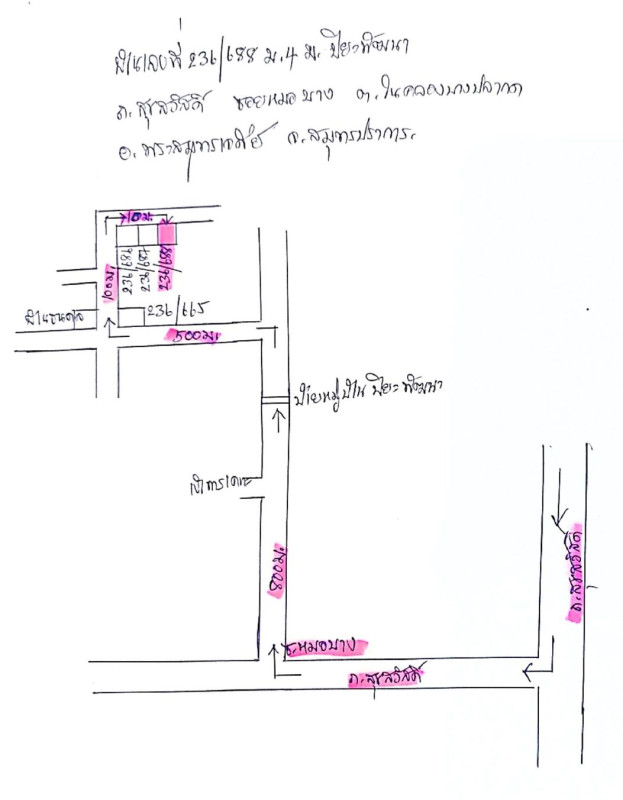 บ้านเลขที่ 236/688 ม.4 ม. ปิยะพัฒนา
ถ. สุขสวัสดิ์ ซอยหมอบาง ต. ในคลองบางปลากด
อ. พระสมุทรเจดีย์ จ. สมุทรปราการ
10 ม.
236/686
236/687
236/688
100 ม.
236/665
500 ม.
ป้ายหมู่บ้าน ปิยะพัฒนา
800 ม.
ถ. สุขสวัสดิ์
ซ. หมอบาง
ถ. สุขสวัสดิ์